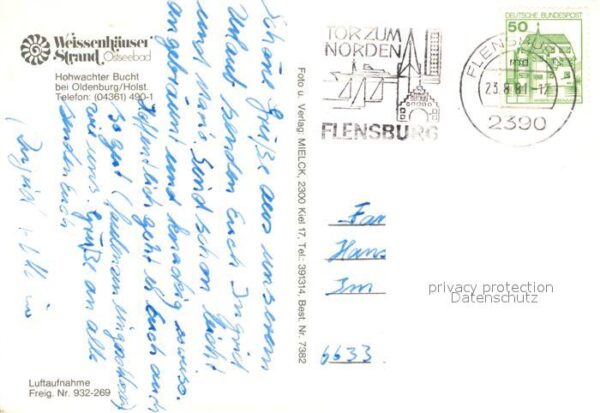 Weissenhäuser
Strand Ostseebad
Hohwachter Bucht
bei Oldenburg/Holst.
Telefon: (04361) 490-1
Schöne Grüße aus unserem
Urlaub senden Euch Ingrid
und Mario. Sind schon
angebräunt und
Hoffentlich geht es Euch auch
so gut
wie uns. Grüße an alle
senden Euch
Luftaufnahme
Freig. Nr. 932-269
Foto u. Verlag: MIELCK, 2300 Kiel 17, Tel.: 391314, Best. Nr. 7382
TOR ZUM
NORDEN
FLENSBURG
FLENSBURG
23.8.81-12
2390
50
DEUTSCHE BUNDESPOST
Hans
Im
6633
privacy protection
Datenschutz